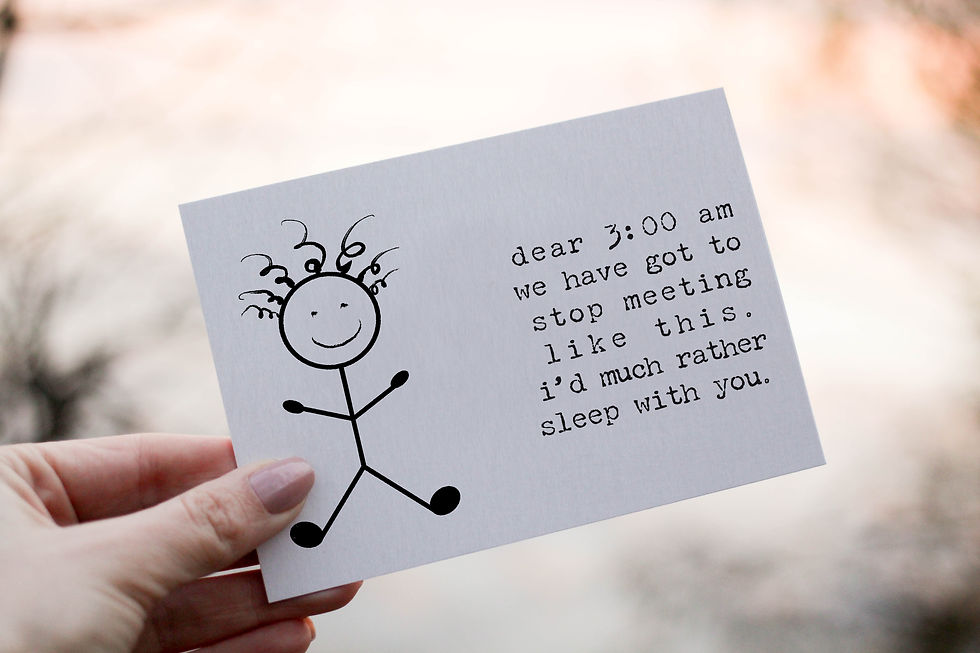 dear 3:00 am
we have got to
stop meeting
like this.
i'd much rather
sleep with you.